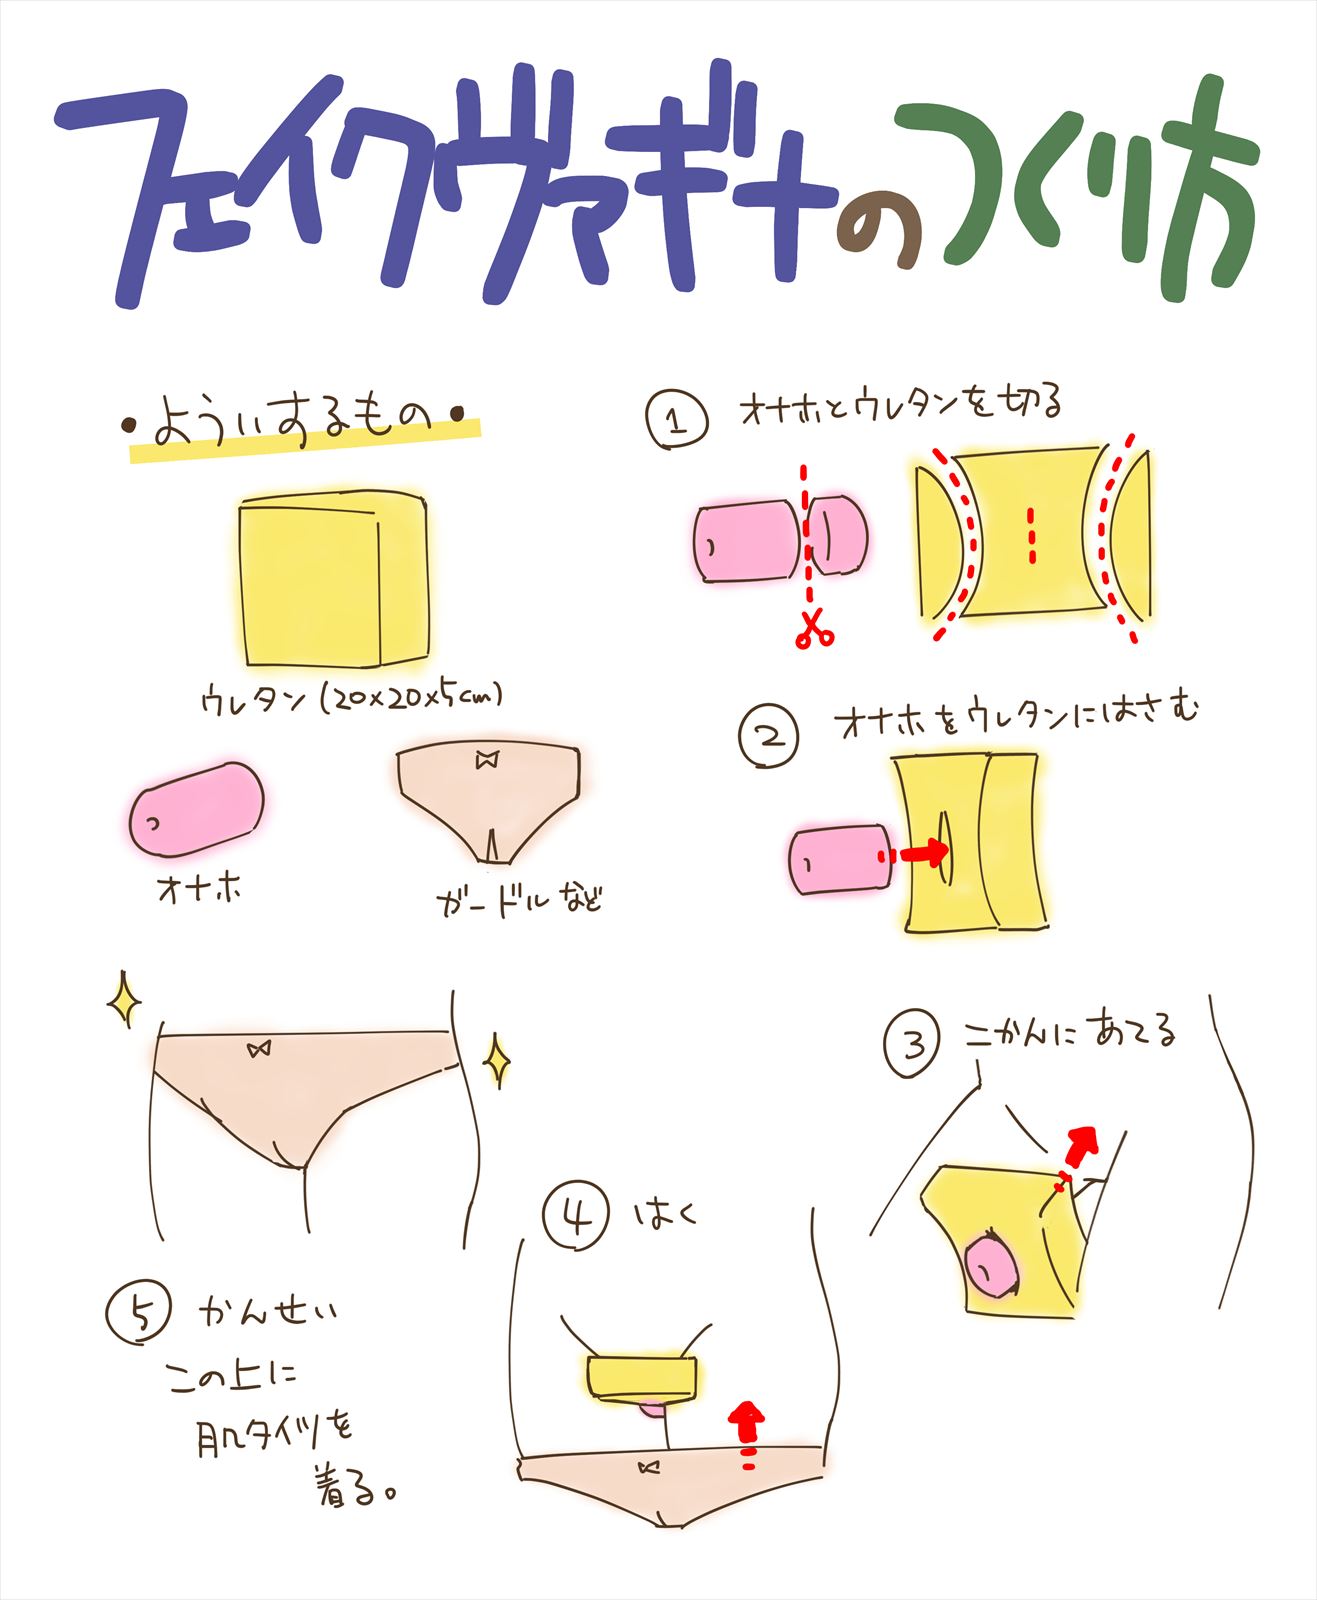 フェイクヴァギナのつくり方
・よういするもの・
ウレタン(20×20×5cm)
オナホ
ガードルなど
① オナホとウレタンを切る
② オナホをウレタンにはさむ
③ こかんにあてる
④ はく
⑤ かんせい
この上に
肌タイツを
着る。